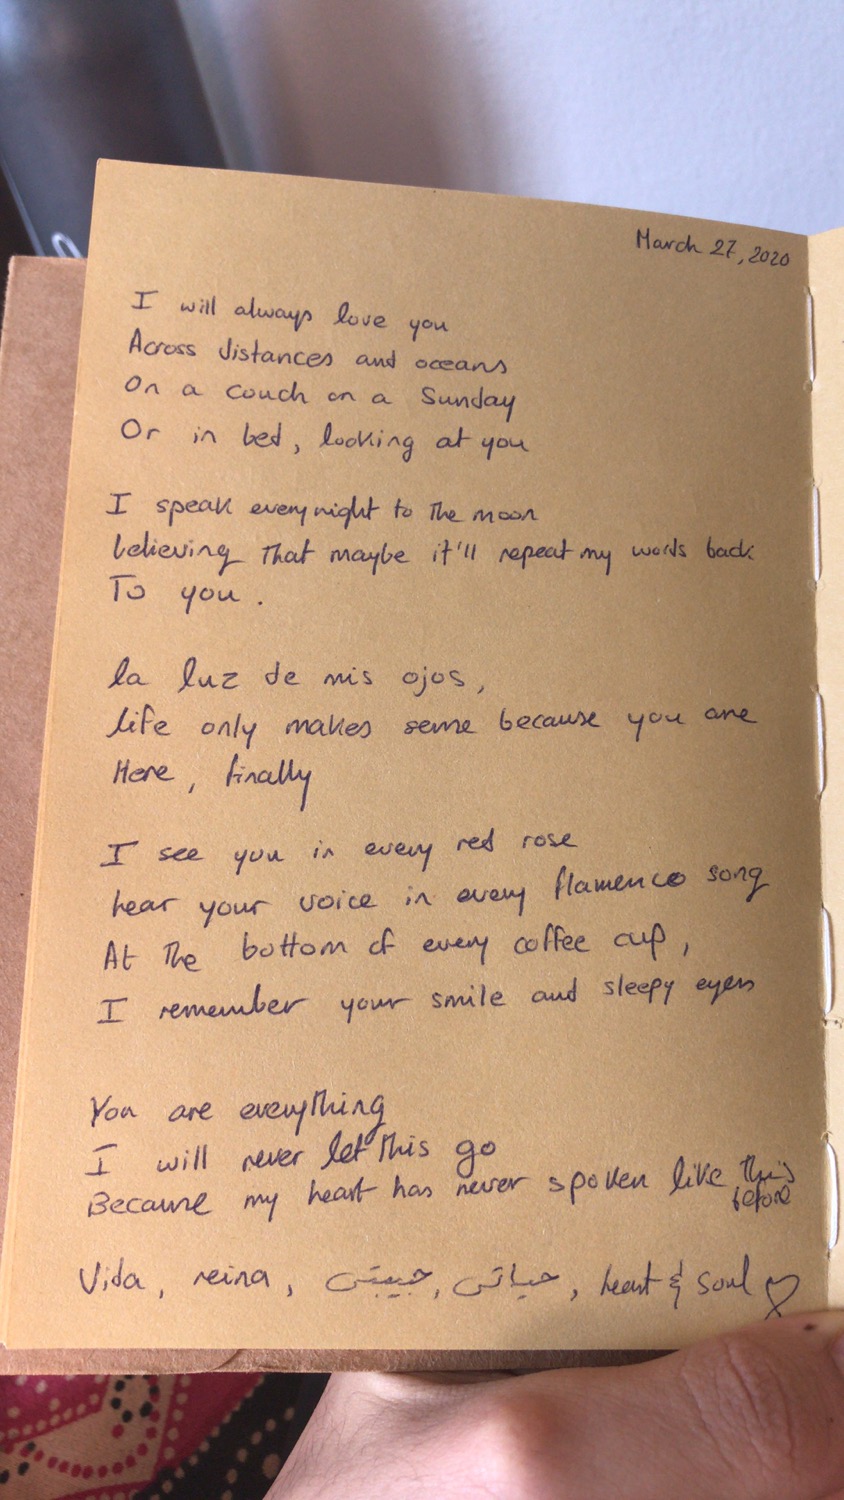 March 27, 2020
I will always love you
Across distances and oceans
On a couch on a Sunday
Or in bed, looking at you
I speak every night to the moon
believing that maybe it'll repeat my words back
To you.
la luz de mis ojos,
life only makes sense because you are
Here, finally
I see you in every red rose
hear your voice in every flamenco song
At the bottom of every coffee cup,
I remember your smile and sleepy eyes
You are everything
I will never let this go
Because my heart has never spoken like this
before
Vida, reina, حبيبتي, حياتي, heart & soul ♡